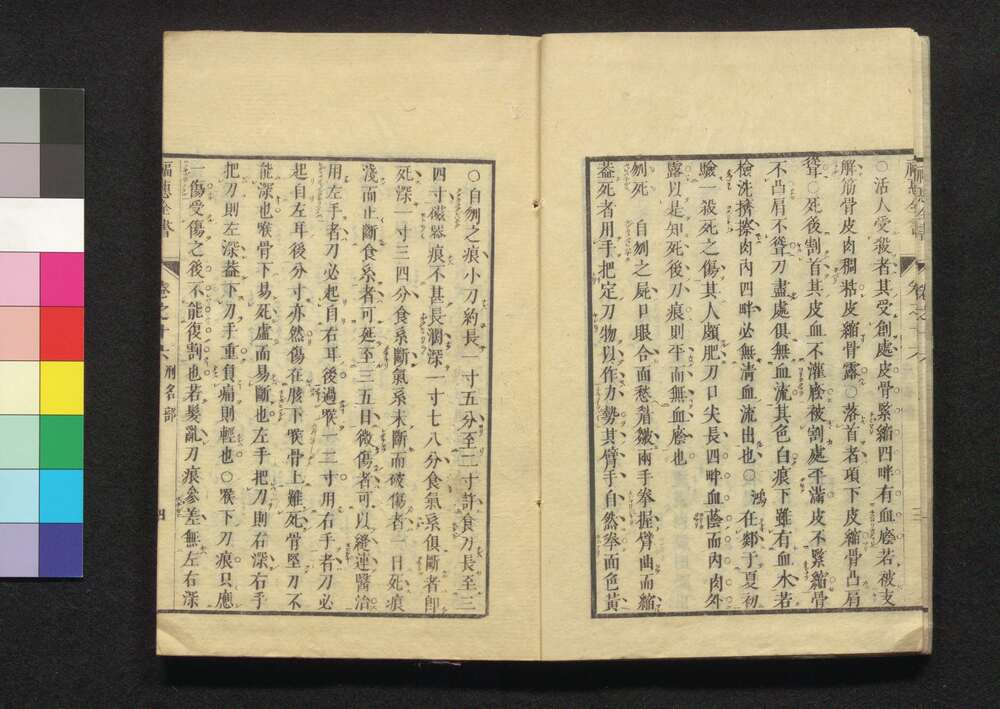 ○活人受殺者其受創處皮骨緊縮四畔有血廕若被支
解筋骨皮肉稠粘皮縮骨露○落首者項下皮縮骨凸肩
聳○死後割首其皮血不灌廕被割處平滿皮不緊縮骨
不凸肩不聳刀盡處俱無血流其色白痕下雖有血水若
檢洗擠捺肉內四畔必無清血流出也○鴻在郯于夏初
驗一殺死之傷其人頗肥刀口尖長四畔血蔭而內肉外
露以是知死後刀痕則平而無血廕也
刎死　自刎之屍口眼合面愁眉皺兩手拳握臂曲而縮
蓋死者用手把定刀物以作力勢其臂手自然拳面色黃
○自刎之痕小刀約長一寸五分至二寸許食刀長至三
四寸磁器痕不甚長濶深一寸七八分食氣系俱斷者即
死深一寸三四分食系斷氣系未斷而破傷者一日死痕
淺而止斷食系者可延至三五日微傷者可以縫連醫治
用左手者刀必起自右耳後過喉一二寸用右手者刀必
起自左耳後分寸亦然傷在胲下喉骨上難死骨堅刀不
能深也喉骨下易死虛而易斷也左手把刀則右深右手
把刀則左深蓋下刀手重負痛則輕也○喉下刀痕只應
一傷受傷之後不能復割也若髮亂刀痕參差無左右深
福惠全書　卷之十六　刑名部　四